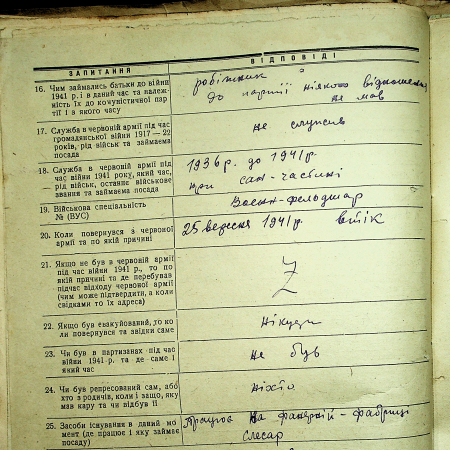 ЗАПИТАННЯ
ВІДПОВІДІ
16. Чим займались батьки до війни
1941 р. і в даний час та належ-
ність їх до комуністичної пар-
тії і з якого часу
робітник
до партії ніякого відношення
не мав
17. Служба в червоній армії під час
громадянської війни 1917—22
років, рід військ та займаєма
посада
не служив
18. Служба в червоній армії під
час війни 1941 року, який час,
рід військ, останнє військове
звання та займаєма посада
1936 р. до 1941 р.
при сан-частині
19. Військова спеціальність
№ (ВУС)
Воєн-фельдшар
20. Коли повернувся з червоної
армії та по якій причині
25 вересня 1941 р. втік
21. Якщо не був в червоній армії
під час війни 1941 р., то по
якій причині та де перебував
підчас відходу червоної армії
(чим може підтвердити, а коли
свідками то їх адреса)
Z
22. Якщо був евакуйований, то ко
ли повернувся та звідки саме
нікуди
23. Чи був в партизанах під час
війни 1941 р. та де саме і
який час
не був
24. Чи був репресований сам, або
хто з родичів, коли і защо, яку
мав кару та чи відбув її
ніхто
25. Засоби існування в даний мо-
мент (де працює і яку займає
посаду)
працюю на фанерній-фабриці
слесар